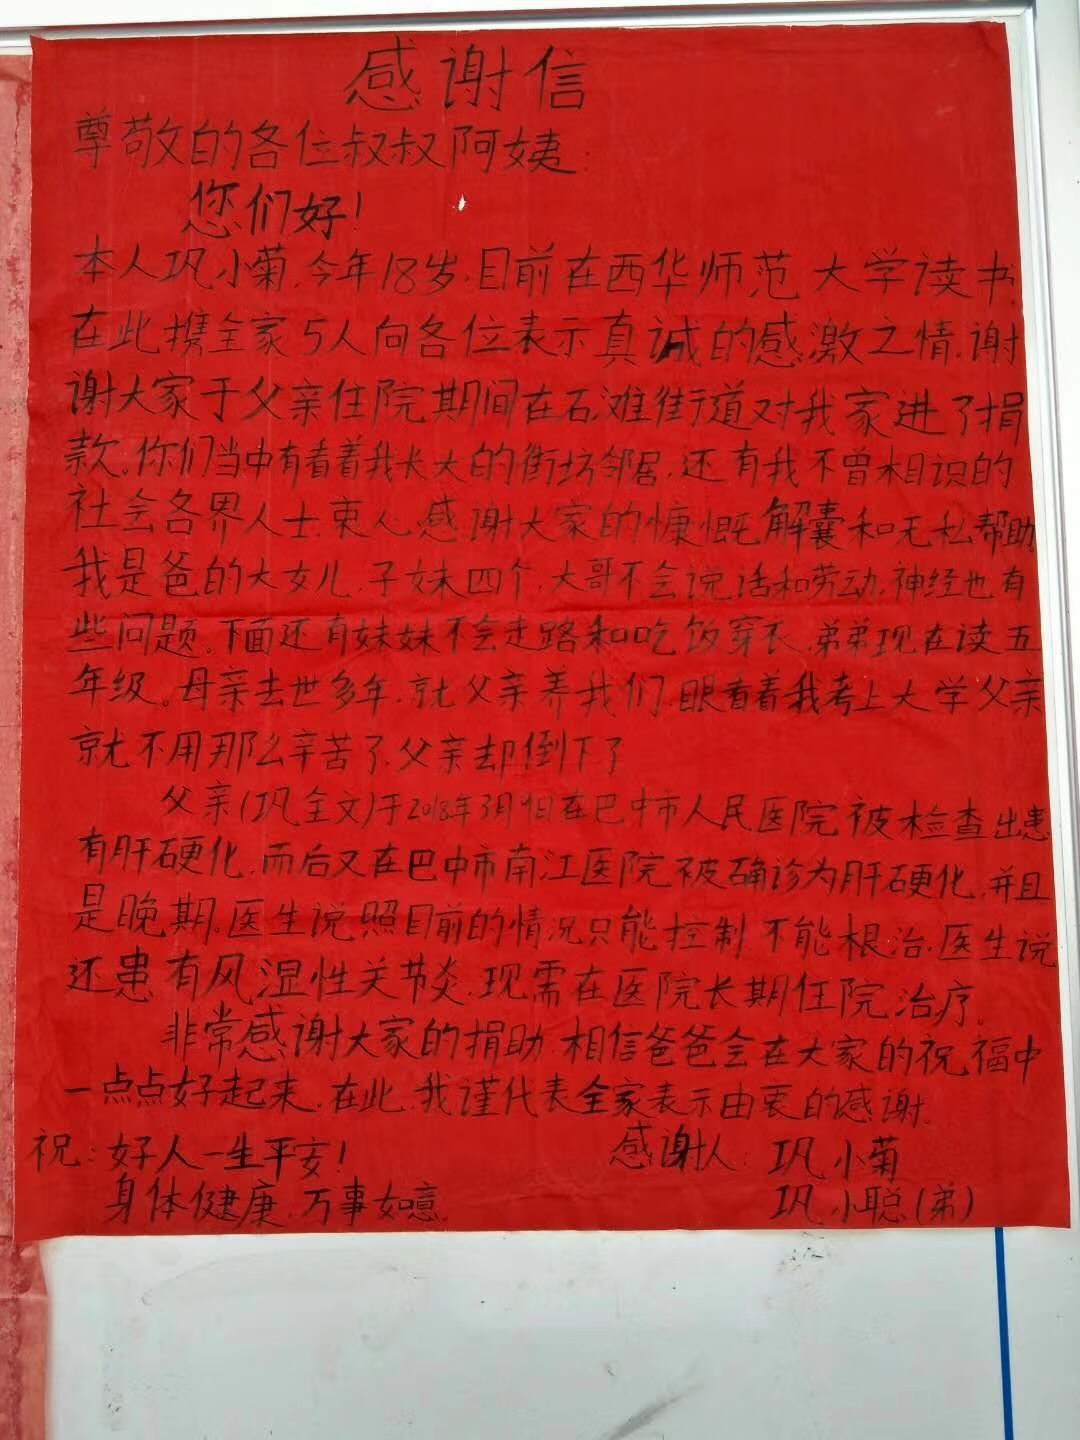 感谢信
尊敬的各位叔叔阿姨:
您们好!
本人巩小菊,今年18岁,目前在西华师范大学读书,
在此携全家5人向各位表示真诚的感激之情,谢
谢大家于父亲住院期间在石滩街道对我家进了捐
款。你们当中有看着我长大的街坊邻居,还有我不曾相识的
社会各界人士,衷心感谢大家的慷慨解囊和无私帮助
我是爸的大女儿,子妹四个,大哥不会说话和劳动,神经也有
些问题。下面还有妹妹不会走路和吃饭穿衣,弟弟现在读五
年级。母亲去世多年,就父亲养我们,眼看着我考上大学父亲
就不用那么辛苦了,父亲却倒下了
父亲(巩全文)于2018年3月9日在巴中市人民医院被检查出患
有肝硬化,而后又在巴中市南江医院被确诊为肝硬化,并且
是晚期。医生说照目前的情况只能控制,不能根治,医生说
还患有风湿性关节炎,现需在医院长期住院治疗。
非常感谢大家的捐助,相信爸爸会在大家的祝福中
一点点好起来,在此,我谨代表全家表示由衷的感谢。
祝:好人一生平安! 感谢人:巩小菊
身体健康,万事如意. 巩小聪(弟)